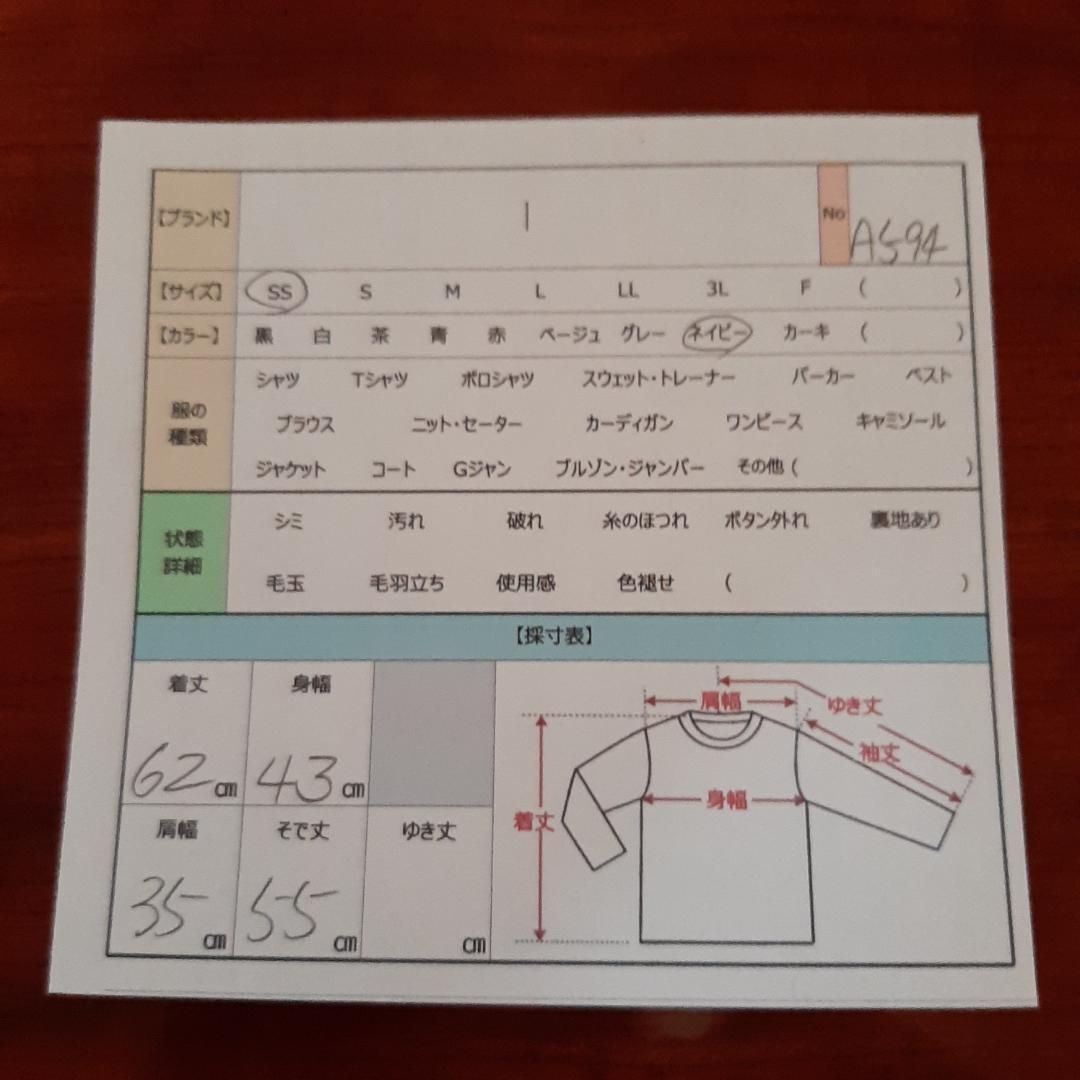 【ブランド】 | No A594
【サイズ】 SS S M L LL 3L F ( )
【カラー】 黒 白 茶 青 赤 ベージュ グレー ネイビー カーキ ( )
服の種類
シャツ Tシャツ ポロシャツ スウェット・トレーナー パーカー ベスト
ブラウス ニット・セーター カーディガン ワンピース キャミソール
ジャケット コート Gジャン ブルゾン・ジャンパー その他 ( )
状態詳細
シミ 汚れ 破れ 糸のほつれ ボタン外れ 裏地あり
毛玉 毛羽立ち 使用感 色褪せ ( )
【採寸表】
着丈 身幅
62cm 43cm
肩幅 そで丈 ゆき丈
35cm 55cm cm
肩幅 ゆき丈
袖丈
身幅
着丈